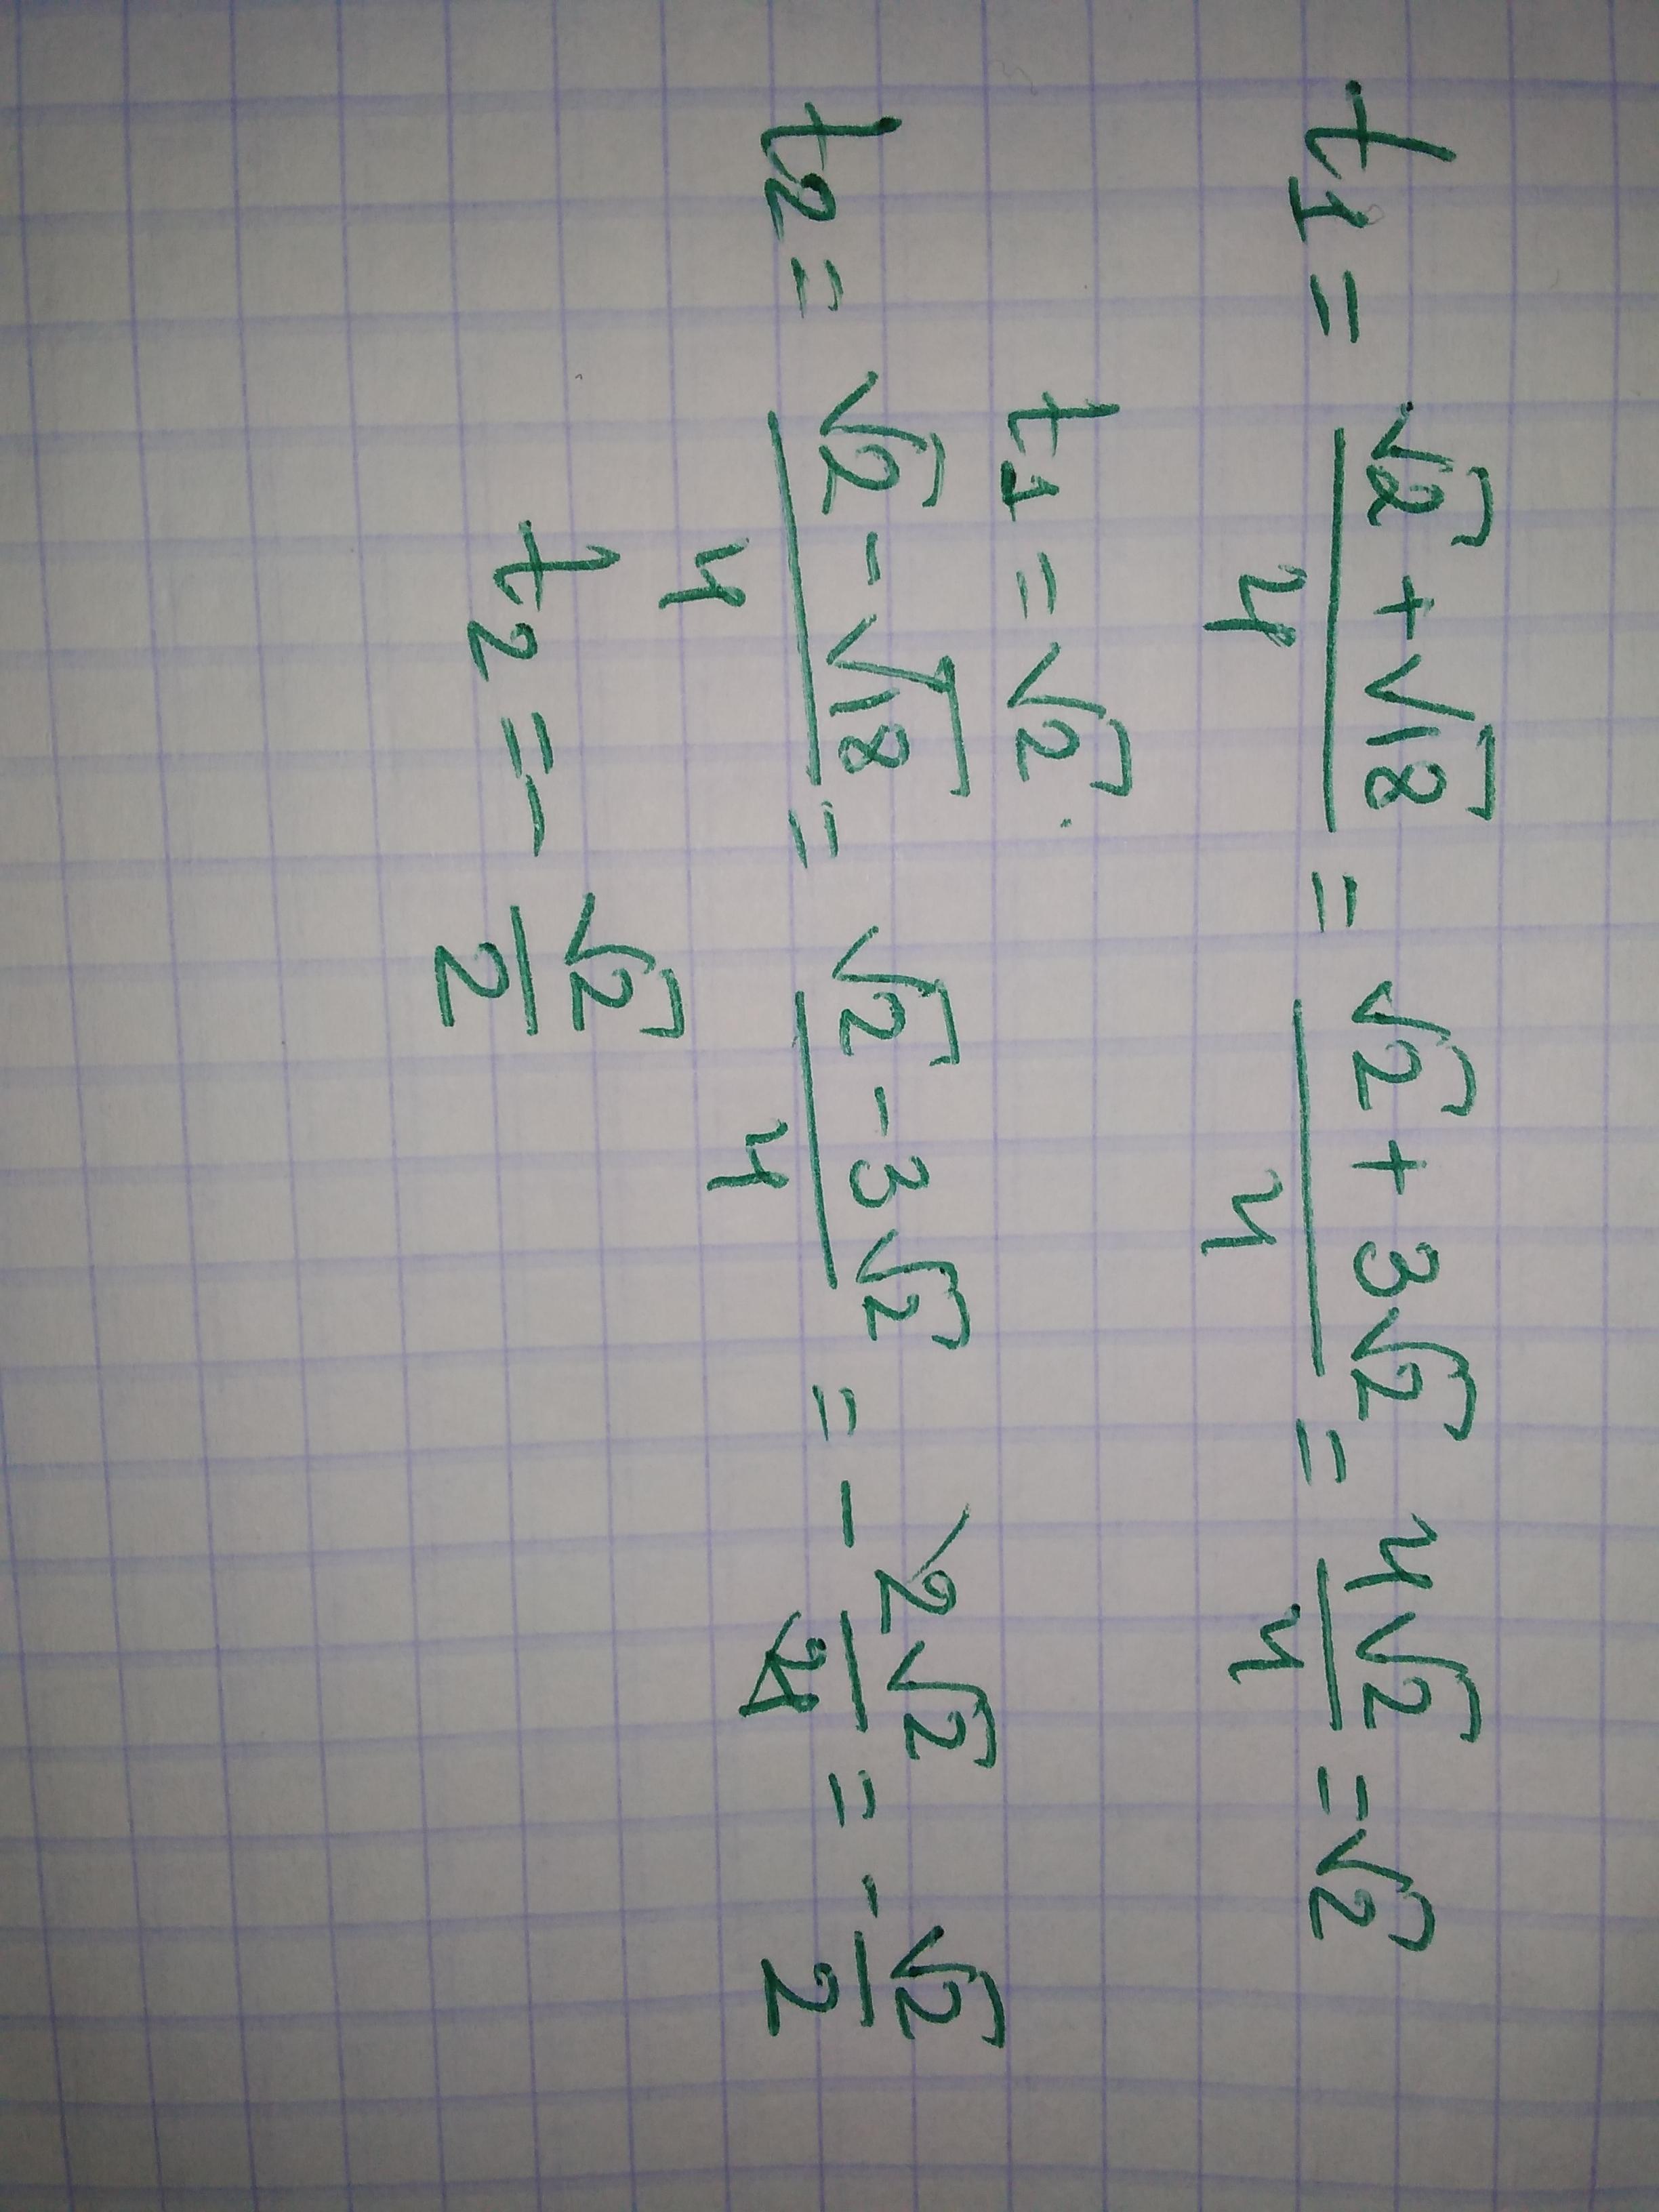 t₁ = (√2 + √18)/4 = (√2 + 3√2)/4 = 4√2/4 = √2
t₁ = √2.
t₂ = (√2 - √18)/4 = (√2 - 3√2)/4 = - 2√2/4 = - √2/2
t₂ = - √2/2